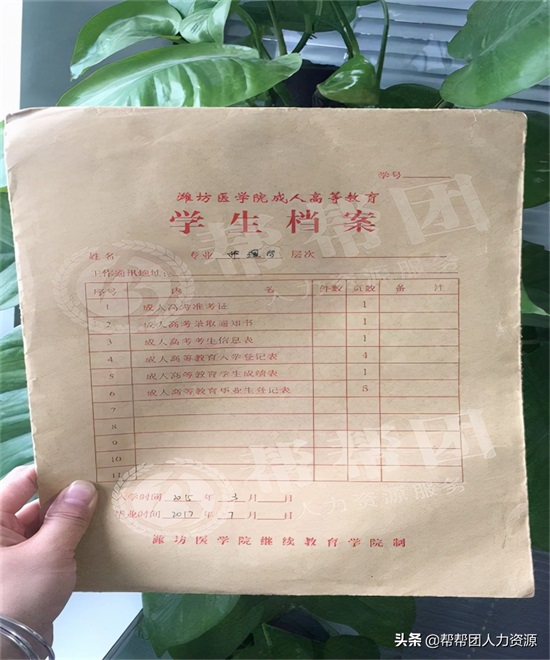 学号
潍坊医学院成人高等教育
学生档案
姓名 专业 层次
工作通讯地址:
序号 内 名 件数 页数 备 注
1 成人高考准考证 1
2 成人高考录取通知书 1
3 成人高考考生信息表 1
4 成人高等教育入学登记表 4
5 成人高等教育学生成绩表 1
6 成人高等教育毕业生登记表 8
7
8
9
10
11
入学时间 2015 年 3 月 日
毕业时间 2017 年 7 月 日
潍坊医学院继续教育学院制
帮帮团
人力资源服务
帮帮团
人力资源服务
头条 @帮帮团人力资源